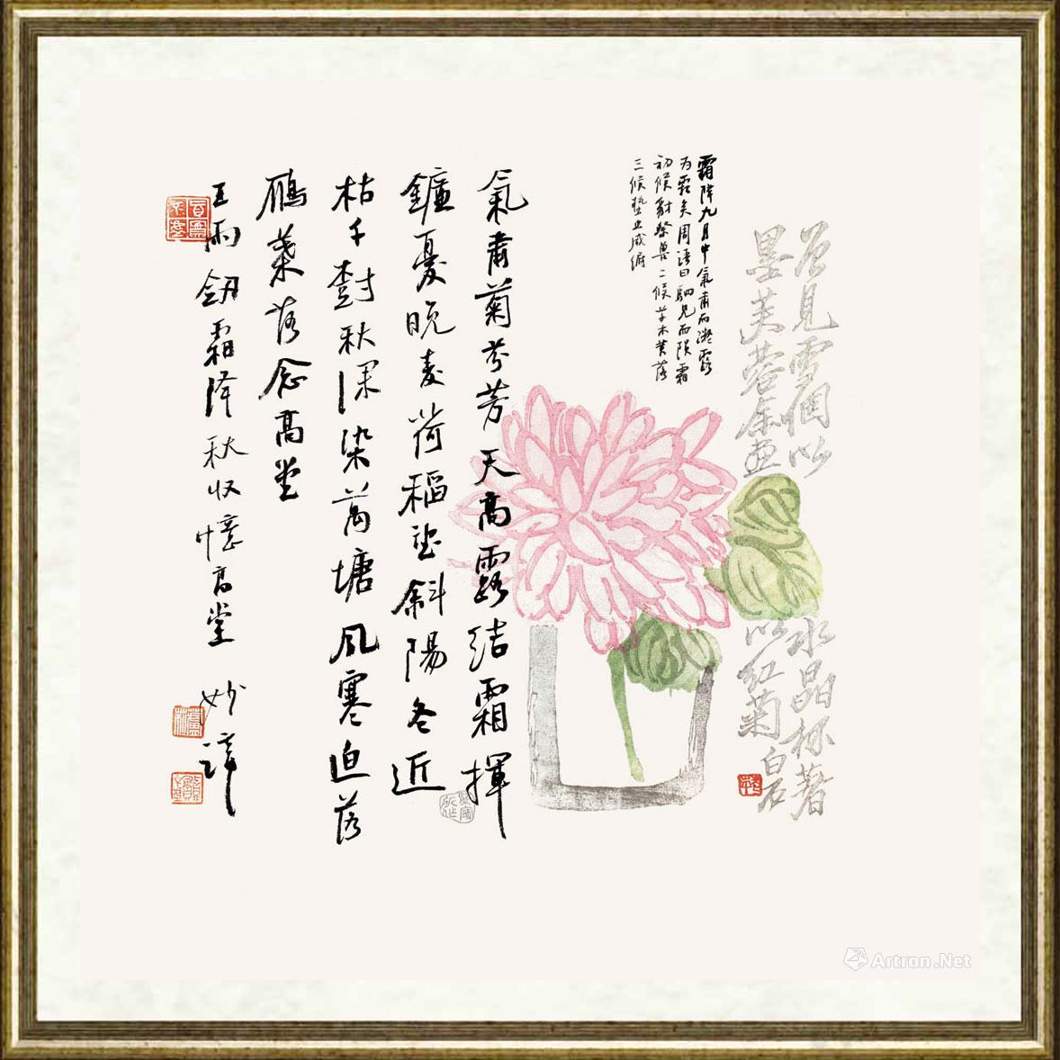 曾見雪個以水晶杯著
墨芙蓉余画以紅菊
白石
霜降九月中氣肅而凝露
为霜矣周語曰駟見而隕霜
初候豺祭獸二候草木黄落
三候蟄虫咸俯
氣肅菊芬芳天高露結霜揮
鐮憂晚麦荷稻望斜陽冬近
枯千樹秋深染萬塘風寒迫落
鴈葉落念高堂
王雨韌霜降秋收憶高堂 妙
Artron.Net